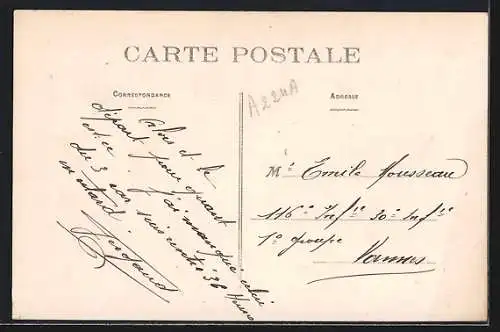 CARTE POSTALE
CORRESPONDANCE
ADRESSE
A224A
Alors et le
départ pour quand
est-ce j'ai manqué celui
du 3 car suis rentré 36 heures
en retard
Mr Emile Mousseau
116e Infie 30e Infie
1e groupe
Vannes